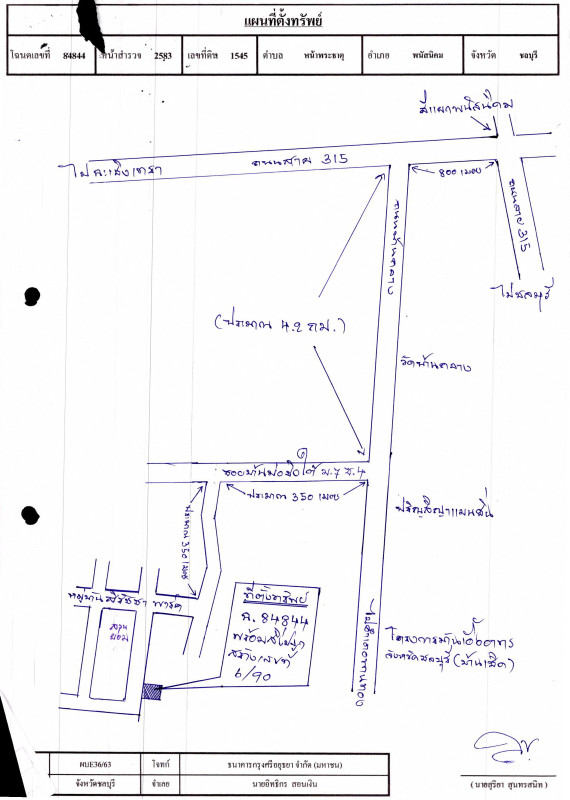 แผนที่ตั้งทรัพย์
โฉนดเลขที่ 84844 หน้าสำรวจ 2583 เลขที่ดิน 1545 ตำบล หน้าพระธาตุ อำเภอ พนัสนิคม จังหวัด ชลบุรี
สี่แยกพนัสนิคม
ถนนสาย 315
ไปฉะเชิงเทรา
800 เมตร
ถนนสาย 315
ไปชลบุรี
ถนนบ้านกลาง
(ประมาณ 4.2 กม.)
วัดบ้านกลาง
ม.7 ซ.4
ประมาณ 350 เมตร
ประมาณ 350 เมตร
หมู่บ้าน พาร์ค
สวน
ที่ตั้งทรัพย์
ฉ. 84844
พร้อมสิ่งปลูก
สร้างเลขที่
6/90
โครงการบ้านเอื้ออาทร
จังหวัดชลบุรี (บ้านเซิด)
ผบE36/63 โจทก์ ธนาคารกรุงศรีอยุธยา จำกัด (มหาชน)
จังหวัดชลบุรี จำเลย นายอิทธิกร สอนเงิน
(นายสุริยา สุนทรสนิท)